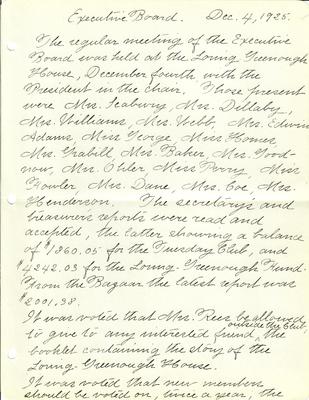 Executive Board. Dec. 4, 1925.
The regular meeting of the Executive
Board was held at the Loring Greenough
House, December fourth, with the
President in the chair. Those present
were Mrs. Seabury, Mrs. Dillaby,
Mrs. Williams, Mrs. Webb, Mrs. Edwin
Adams, Miss George, Miss Homer,
Mrs. Grabill, Mrs. Baker, Mrs. Good-
now, Mrs. Ohler, Miss Perry, Miss
Fowler, Mrs. Dane, Mrs. Coe, Mrs.
Henderson. The secretary's and
treasurer's reports were read and
accepted, the latter showing a balance
of $1860.05 for the Tuesday Club, and
$4242.03 for the Loring-Greenough Fund.
From the Bazaar the latest report was
$2001.38.
It was voted that Mrs. Rees be allowed
to give to any interested friend, outside the Club,
the
booklet containing the story of the
Loring-Greenough House.
It was voted that new members
should be voted on, twice a year, the